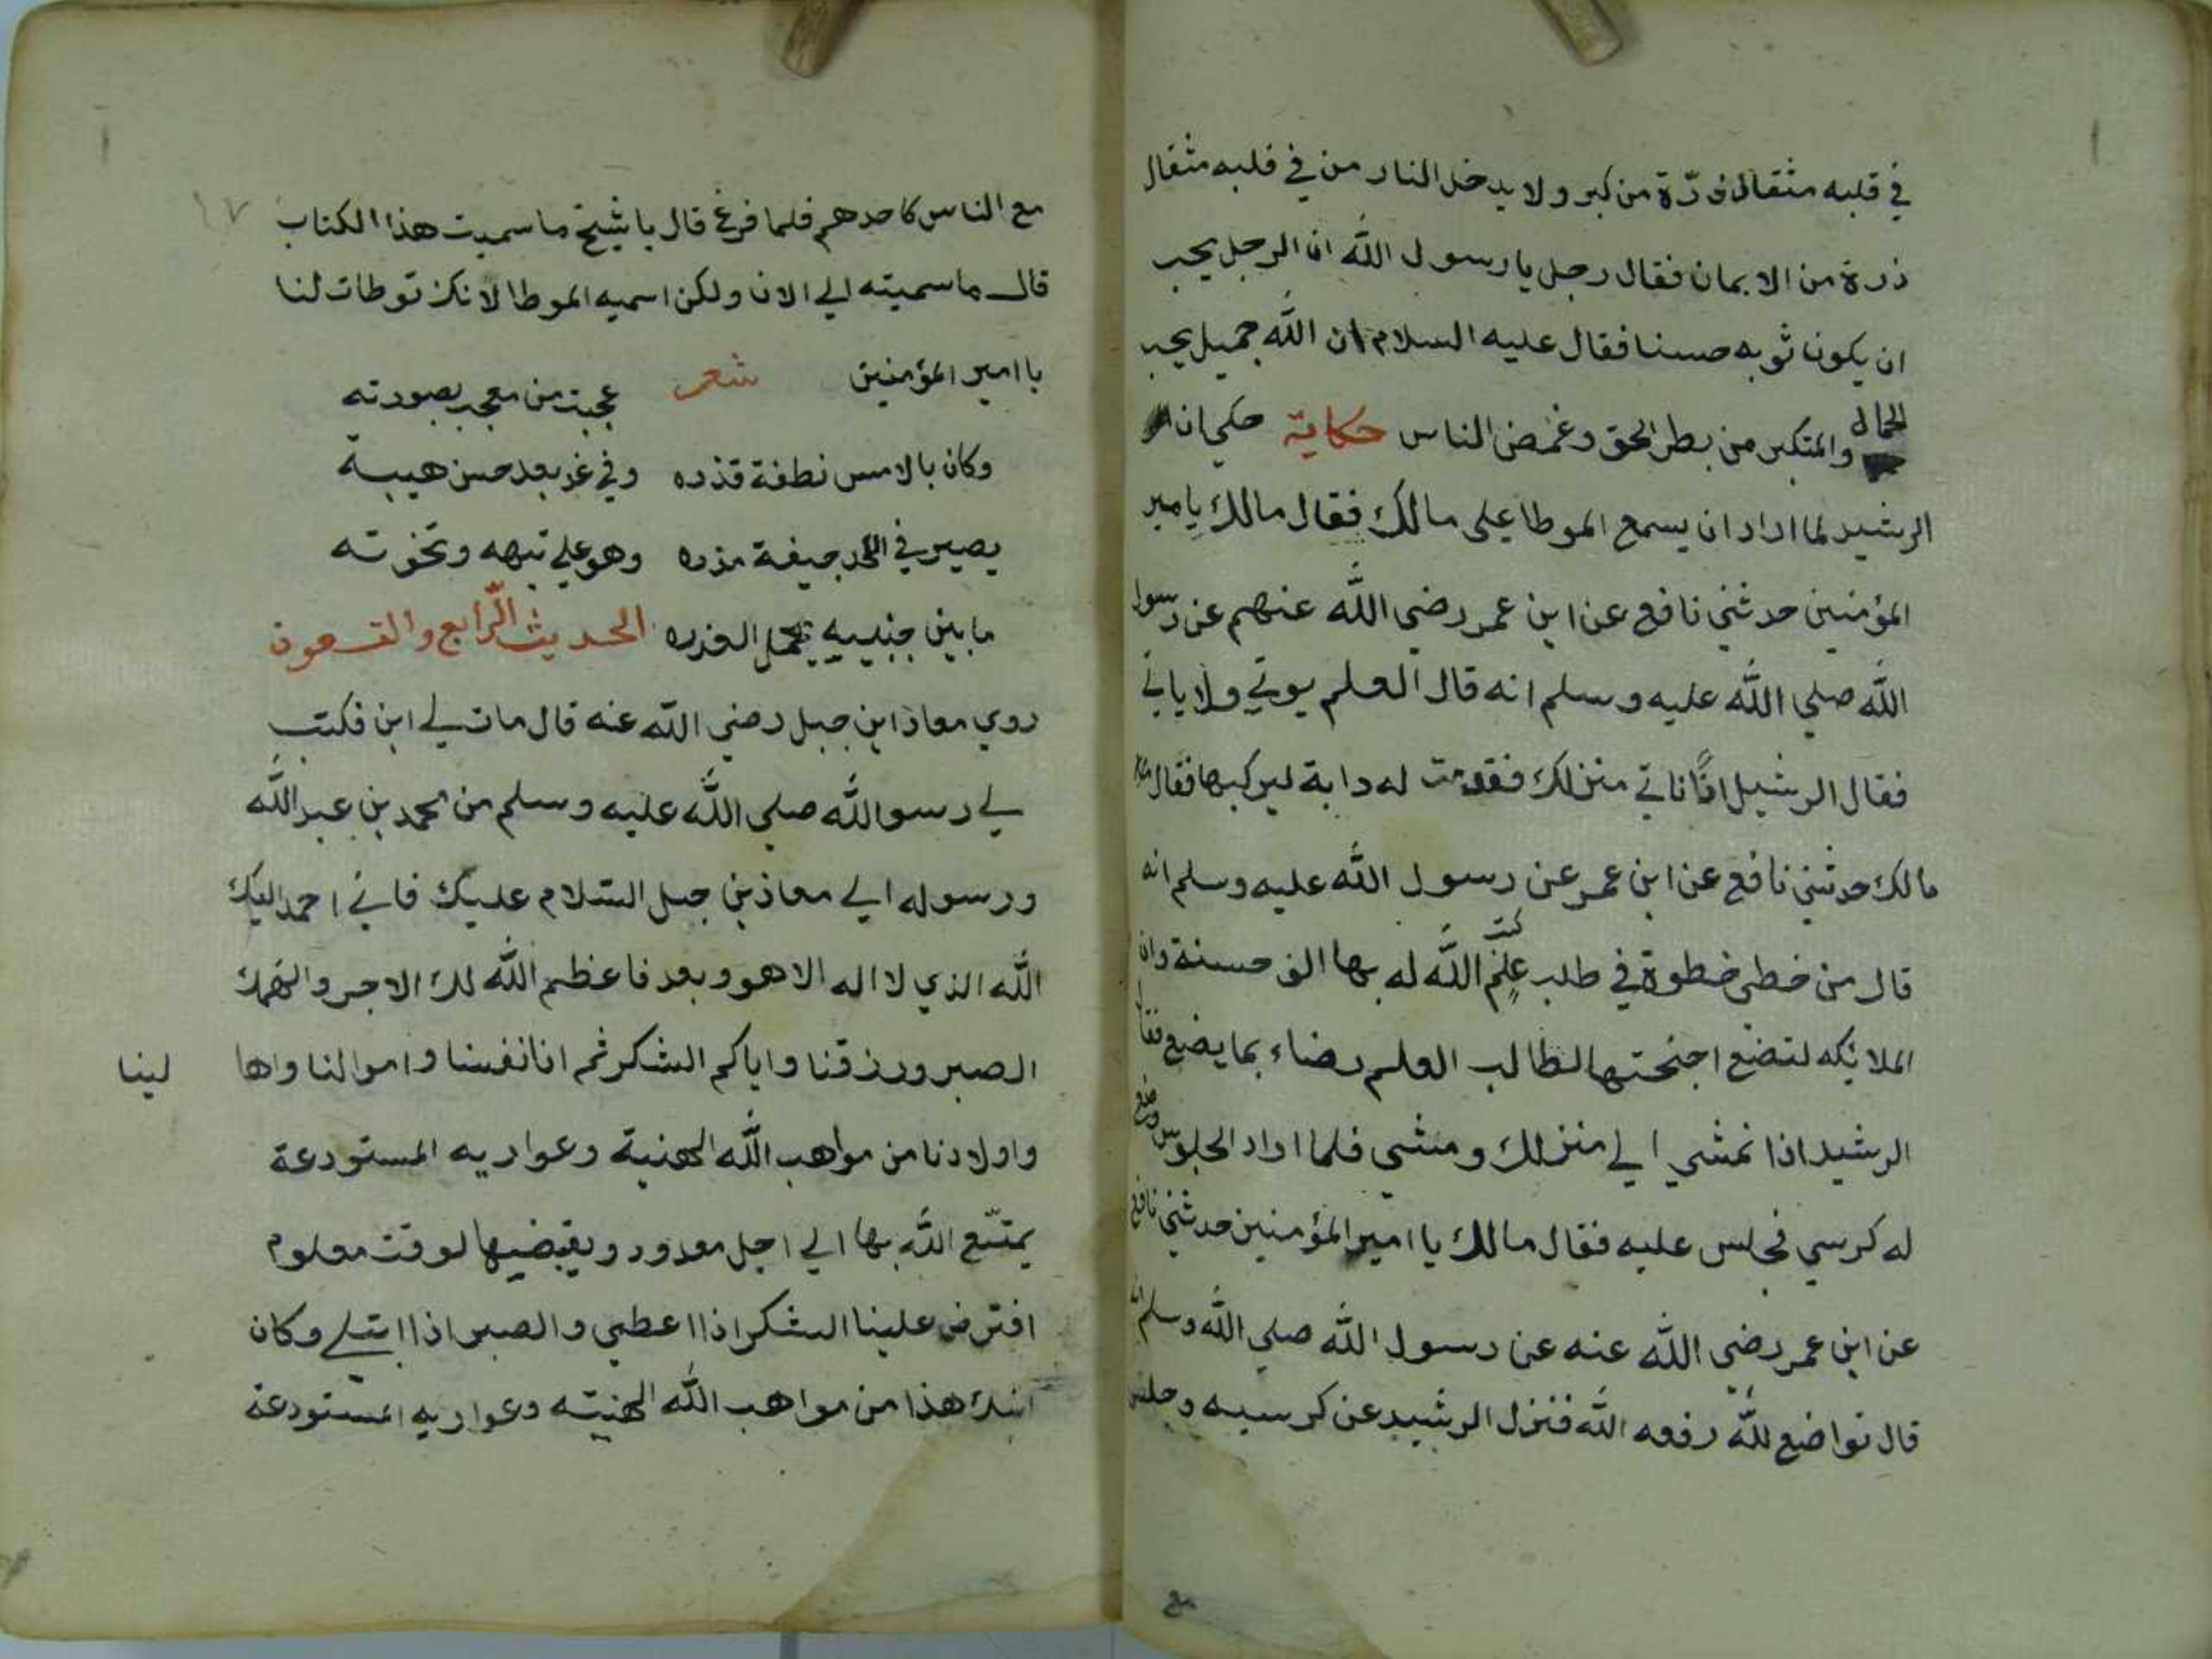 في قلبه مثقال ذرّة من كبر ولا يدخل النار من في قلبه مثقال
ذرة من الايمان فقال رجل يا رسول الله ان الرجل يحب
ان يكون ثوبه حسنا فقال عليه السلام ان الله جميل يحب
الجمال والمتكبر من بطر الحق وغمض الناس حكاية حكي ان
الرشيد لما اراد ان يسمع الموطا على مالك فقال مالك يامير
المؤمنين حدثني نافع عن ابن عمر رضي الله عنهم عن رسول
الله صلي الله عليه وسلم انه قال العلم يوتي ولا ياتي
فقال الرشيد اذًا ناتي منزلك فقدمت له دابة ليركبها فقال
مالك حدثني نافع عن ابن عمر عن رسول الله عليه وسلم انه
قال من خطى خطوة في طلب علم كتب الله له بها الف حسنة وان
الملائكه لتضع اجنحتها لطالب العلم رضاء بما يضع فقال
الرشيد اذا نمشي الي منزلك ومشى فلما اراد الجلوس وضع
له كرسي فجلس عليه فقال مالك يا امير المؤمنين حدثني نافع
عن ابن عمر رضي الله عنه عن رسول الله صلي الله وسلم انه
قال تواضع لله رفعه الله فنزل الرشيد عن كرسيه وجلس
مع
١٧
مع الناس كاحدهم فلما فرغ قال يا شيخ ما سميت هذا الكتاب
قال ما سميته الي الان ولكن اسميه الموطا لانك توطات لنا
يا امير المؤمنين شعر عجبت من معجب بصورته
وكان بالامس نطفة قذره وفي غد بعد حسن هيبة
يصير في اللحد جيفة مذره وهو علي تيهه ونخوته
ما بين جنبيه يحمل العذره الحديث الرّابع والتسعون
روي معاذ ابن جبل رضي الله عنه قال مات لي ابن فكتب
لي رسو الله صلي الله عليه وسلم من محمد بن عبد الله
ورسوله الي معاذ بن جبل السّلام عليك فاني احمد اليك
الله الذي لا اله الا هو وبعد فاعظم الله لك الاجر والهمك
الصبر ورزقنا واياكم الشكر ثم ان انفسنا واموالنا واها لينا
واولادنا من مواهب الله الهنية وعواريه المستودعة
يمتّع الله بها الي اجل معدود ويقبضها لوقت معلوم
افترض علينا الشكر اذا اعطي والصبر اذا ابتلي وكان
ابنك هذا من مواهب الله الهنيته وعواريه المستودعة